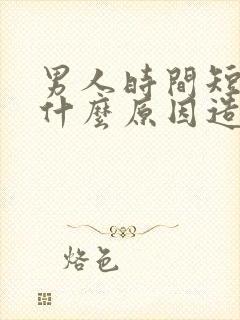 男人時間短
什麼原因造
烙色